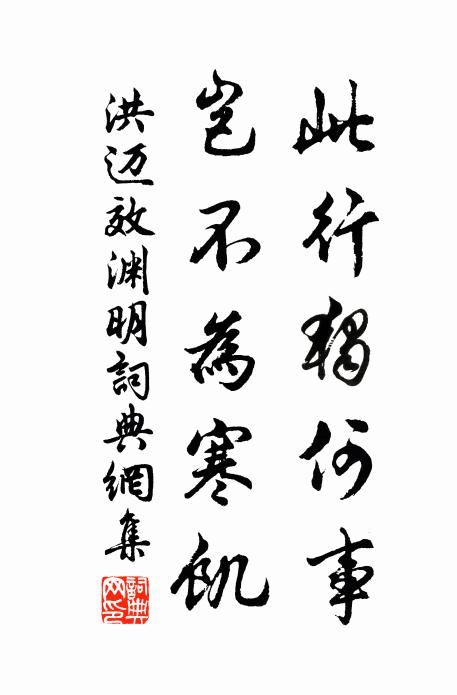 此行獨何事
豈不為寒飢
洪迈效渊明詞典網集
詞典网印